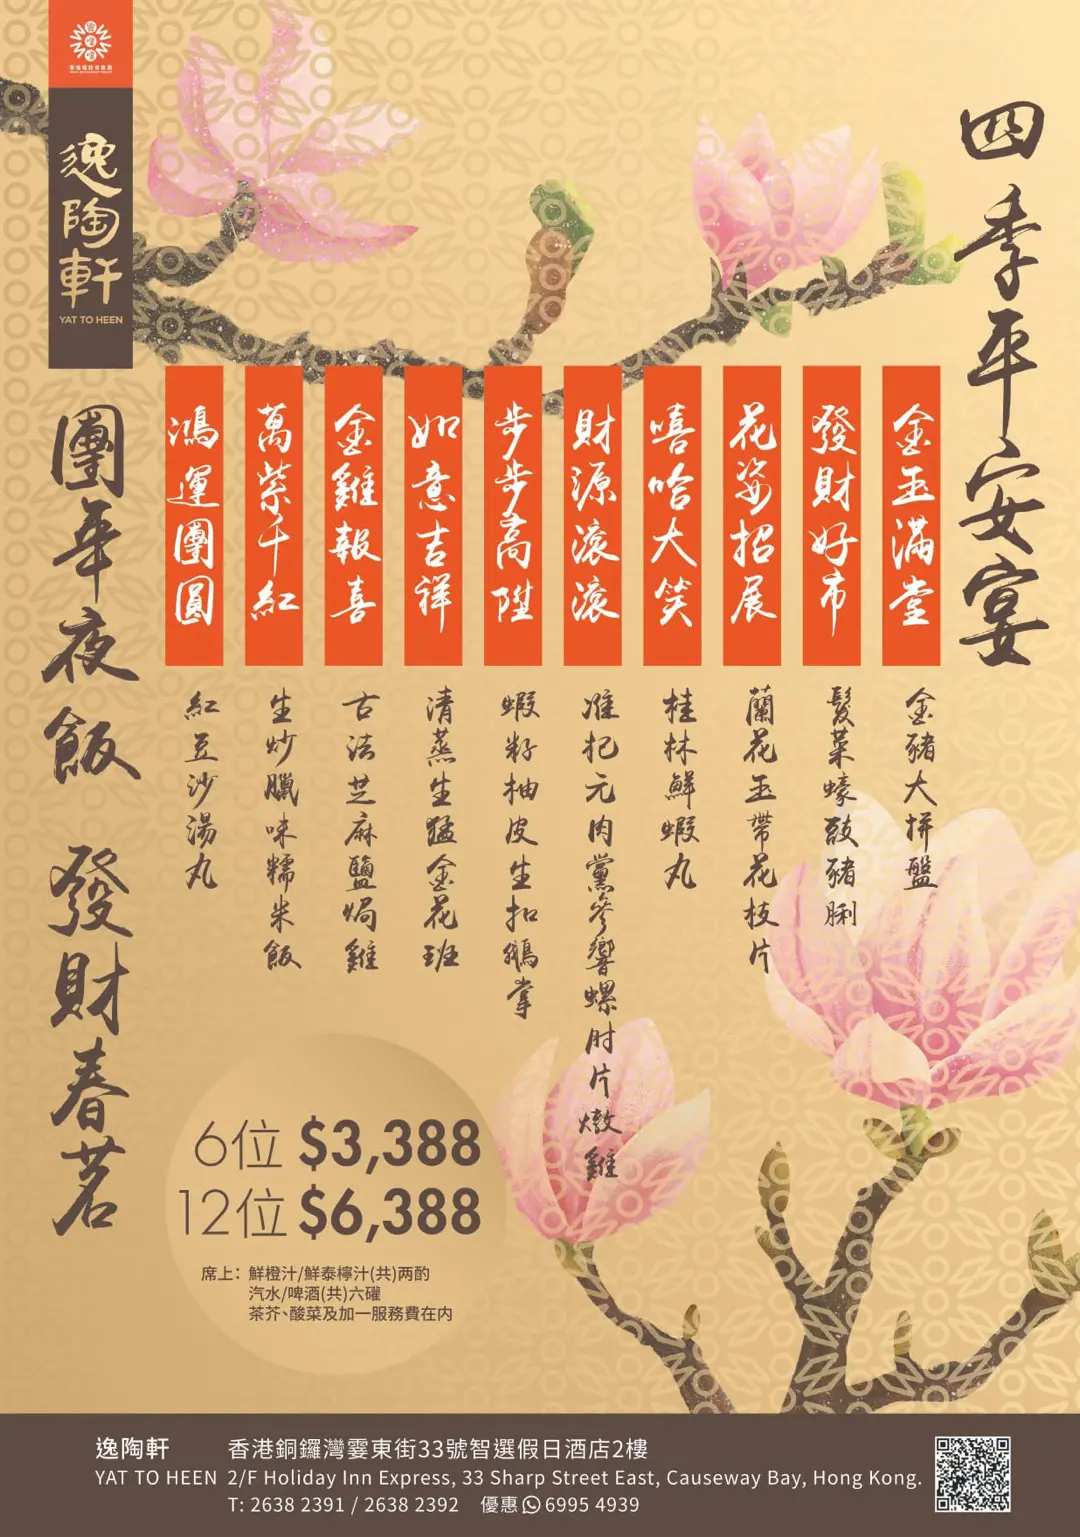 逸陶軒
YAT TO HEEN
四季平安宴
金玉滿堂
金豬大拼盤
發財好市
髮菜蠔豉豬脷
花姿招展
蘭花玉帶花枝片
嘻哈大笑
桂林鮮蝦丸
財源滾滾
准杞元肉黨參響螺肘片燉雞
步步高陞
蝦籽柚皮生扣鵝掌
如意吉祥
清蒸生猛金花班
金雞報喜
古法芝麻鹽焗雞
萬紫千紅
生炒臘味糯米飯
鴻運團圓
紅豆沙湯丸
團年夜飯 發財春茗
6位 $3,388
12位 $6,388
席上：鮮橙汁/鮮泰檸汁(共)两酌
汽水/啤酒(共)六罐
茶芥、酸菜及加一服務費在内
逸陶軒 香港銅鑼灣霎東街33號智選假日酒店2樓
YAT TO HEEN 2/F Holiday Inn Express, 33 Sharp Street East, Causeway Bay, Hong Kong.
T: 2638 2391 / 2638 2392 優惠 6995 4939